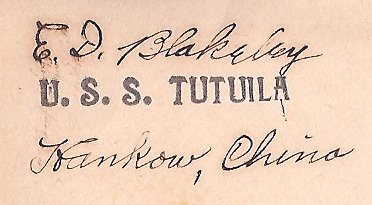 E. D. Blakeley
U. S. S. TUTUILA
Hankow, China